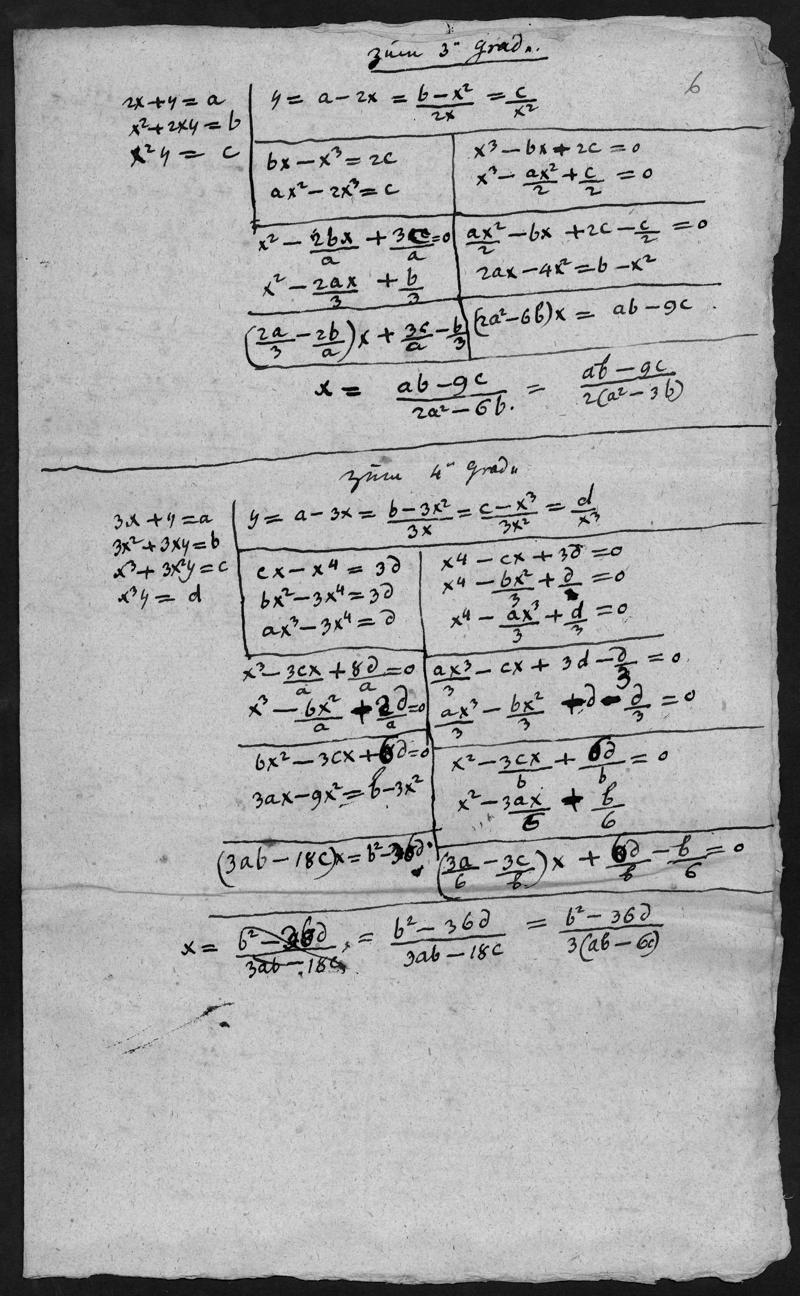 zum 3ⁿ Grad.
6
2x + y = a
x² + 2xy = b
x²y = c
y = a − 2x = (b − x²)/2x = c/x²
bx − x³ = 2c
ax² − 2x³ = c
x³ − bx + 2c = 0
x³ − ax²/2 + c/2 = 0
x² − 2bx/a + 3c/a = 0
x² − 2ax/3 + b/3
ax²/2 − bx + 2c − c/2 = 0
2ax − 4x² = b − x²
(2a/3 − 2b/a)x + 3c/a − b/3
(2a² − 6b)x = ab − 9c
x = (ab − 9c)/(2a² − 6b) = (ab − 9c)/2(a² − 3b)
zum 4ⁿ Grad
3x + y = a
3x² + 3xy = b
x³ + 3x²y = c
x³y = d
y = a − 3x = (b − 3x²)/3x = (c − x³)/3x² = d/x³
cx − x⁴ = 3d
bx² − 3x⁴ = 3d
ax³ − 3x⁴ = d
x⁴ − cx + 3d = 0
x⁴ − bx²/3 + d = 0
x⁴ − ax³/3 + d/3 = 0
x³ − 3cx/a + 8d/a = 0
x³ − bx²/a + 2d/a = 0
ax³/3 − cx + 3d − d/3 = 0
ax³/3 − bx²/3 + d − d/3 = 0
bx² − 3cx + 6d = 0
3ax − 9x² = b − 3x²
x² − 3cx/b + 6d/b = 0
x² − 3ax/6 + b/6
(3ab − 18c)x = b² − 36d
(3a/6 − 3c/b)x + 6d/b − b/6 = 0
x = (b² − 36d)/(3ab − 18c) = (b² − 36d)/(3ab − 18c) = (b² − 36d)/3(ab − 6c)